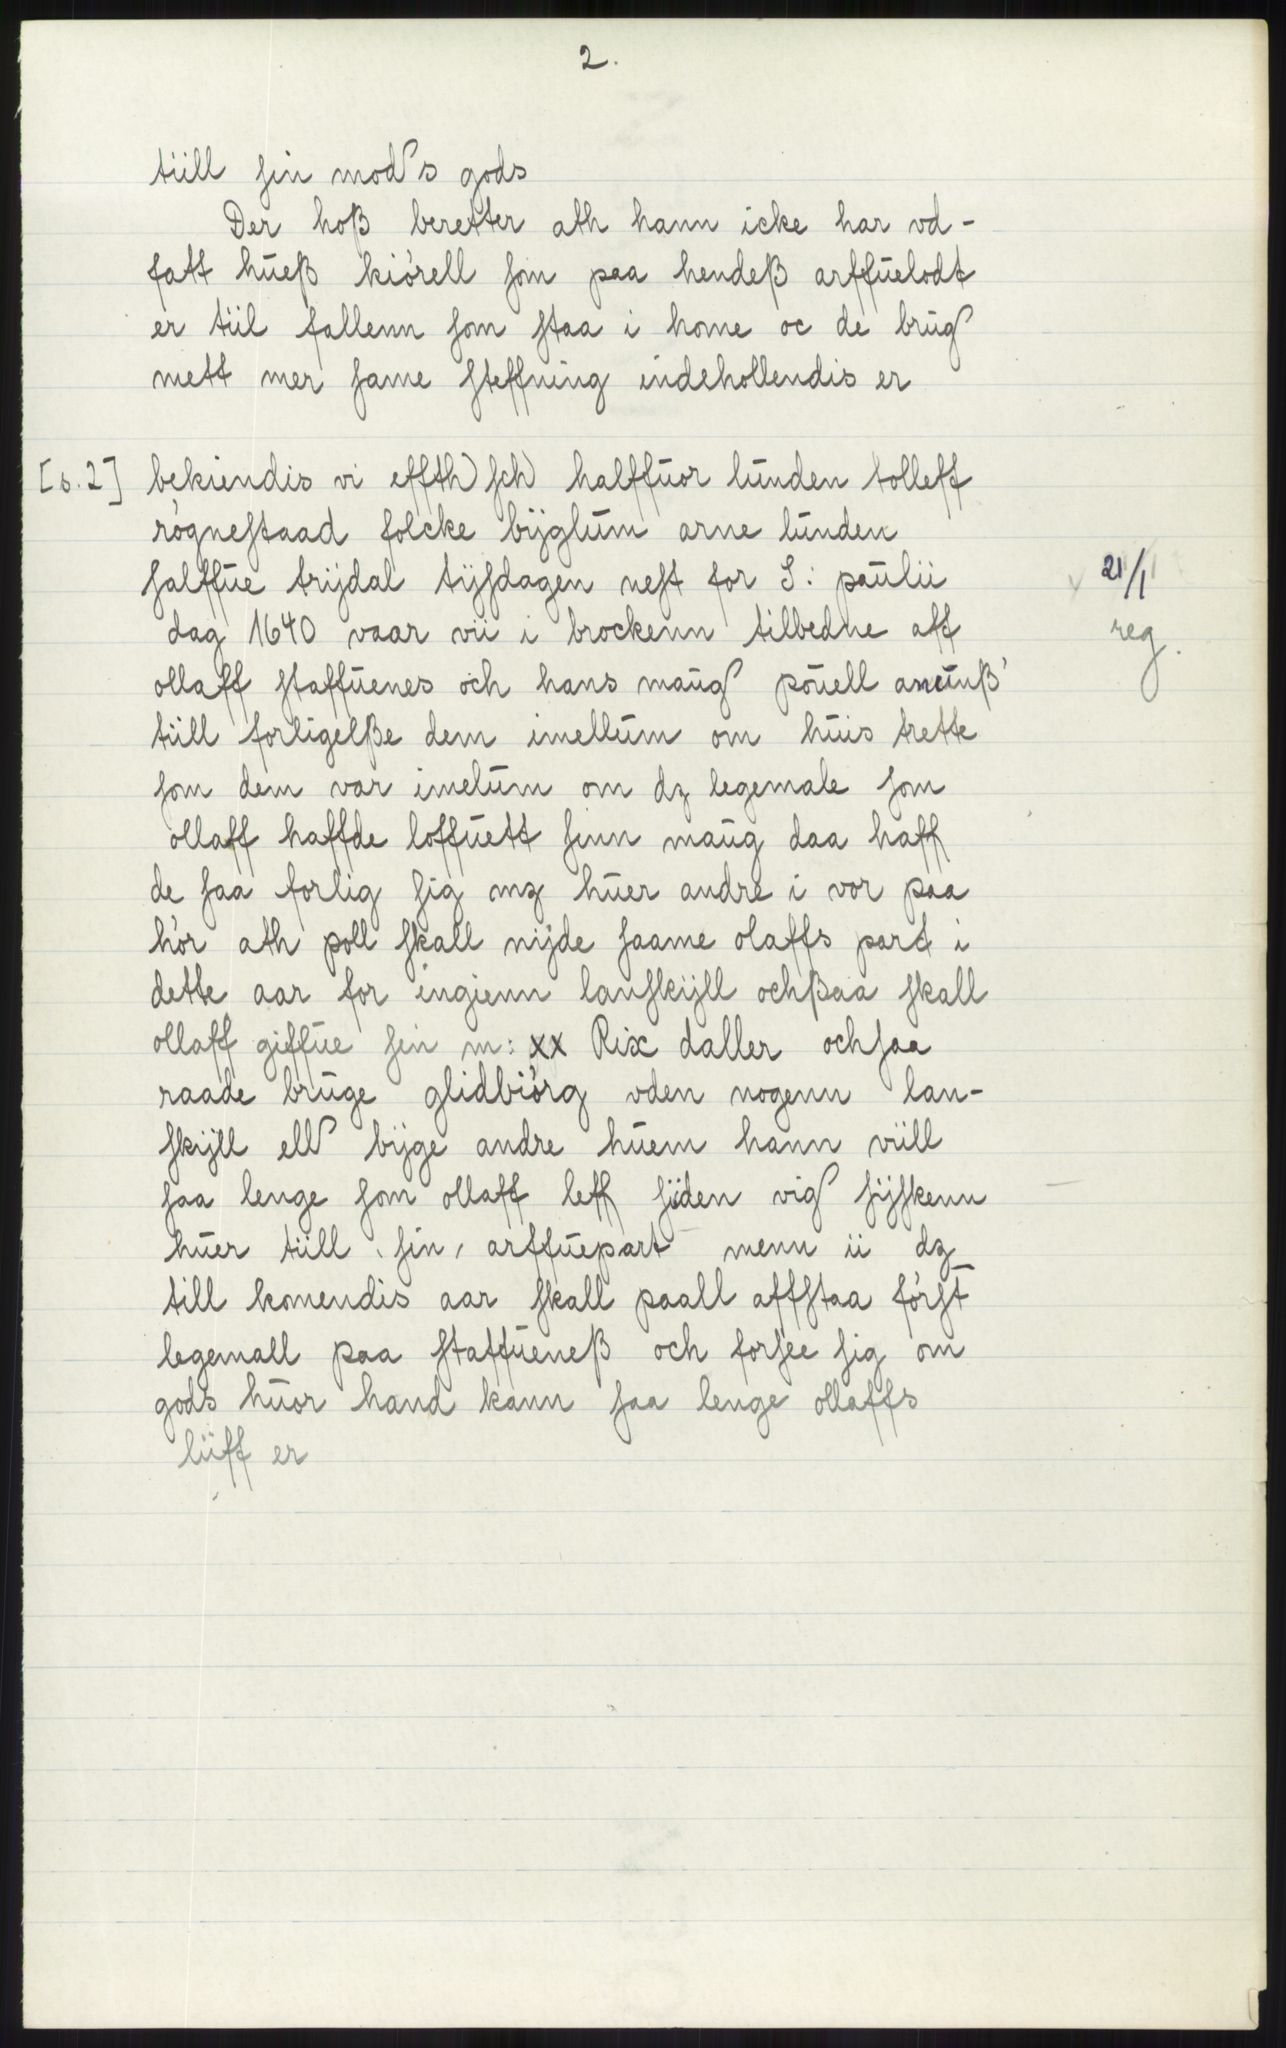 2.
tiill sin mods gods
Der hoß beretter ath hann icke har vd-
fatt hueß kiórell som paa hendeß arffuelodt
er tiil fallenn som staa i home oc de brug
mett mer same steffning indehollendis er
[s. 2] bekiendis vi effth) sch) halffuor lunden tolleff
rógnestaad folcke bijglum arne lunden
salffue trijdal tijsdagen nest for S: paulii 21/1
dag 1640 vaar vii i brockenn tilbedne aff reg.
ollaff staffuenes och hans maug póuell
tiill forligelße dem imellum om huis trette
som dem var imelum om dz legemale som
ollaff haffde loffuett sinn maug daa haff
de saa forlig sig mz huer andre i vor paa
hór ath poll skall nijde saame olaffs part i
dette aar for ingienn lanskijll ochßaa skall
ollaff giffue sin m: xx Rix daller ochsaa
raade bruge glidbiórg vden nogenn lan-
skijll ell bijge andre huem hann viill
saa lenge som ollaff leff siden vig sijskenn
huer tiill sin arffuepart menn ii dz
till komendis aar skall paall affstaa fórst
legemall paa staffueneß och forsee sig om
gods huor hand kann saa lenge ollaffs
liiff er